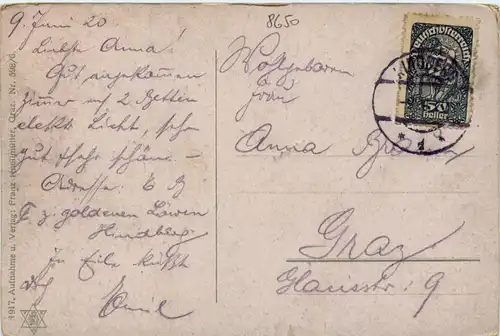 9. Juni 20
8650
Liebste Anna!
Gut angekommen
Zimmer mit 2 Betten
elektr Licht, sehr
gut & sehr schön –
Adresse: E B
z. goldenen Löwen
In Eile küsst
Emil
Wohlgeboren
Frau
Anna
Graz
9
Deutschösterreich
50
Heller
1917, Aufnahme u. Verlag: Franz Knollmüller, Graz. Nr. 598/6.